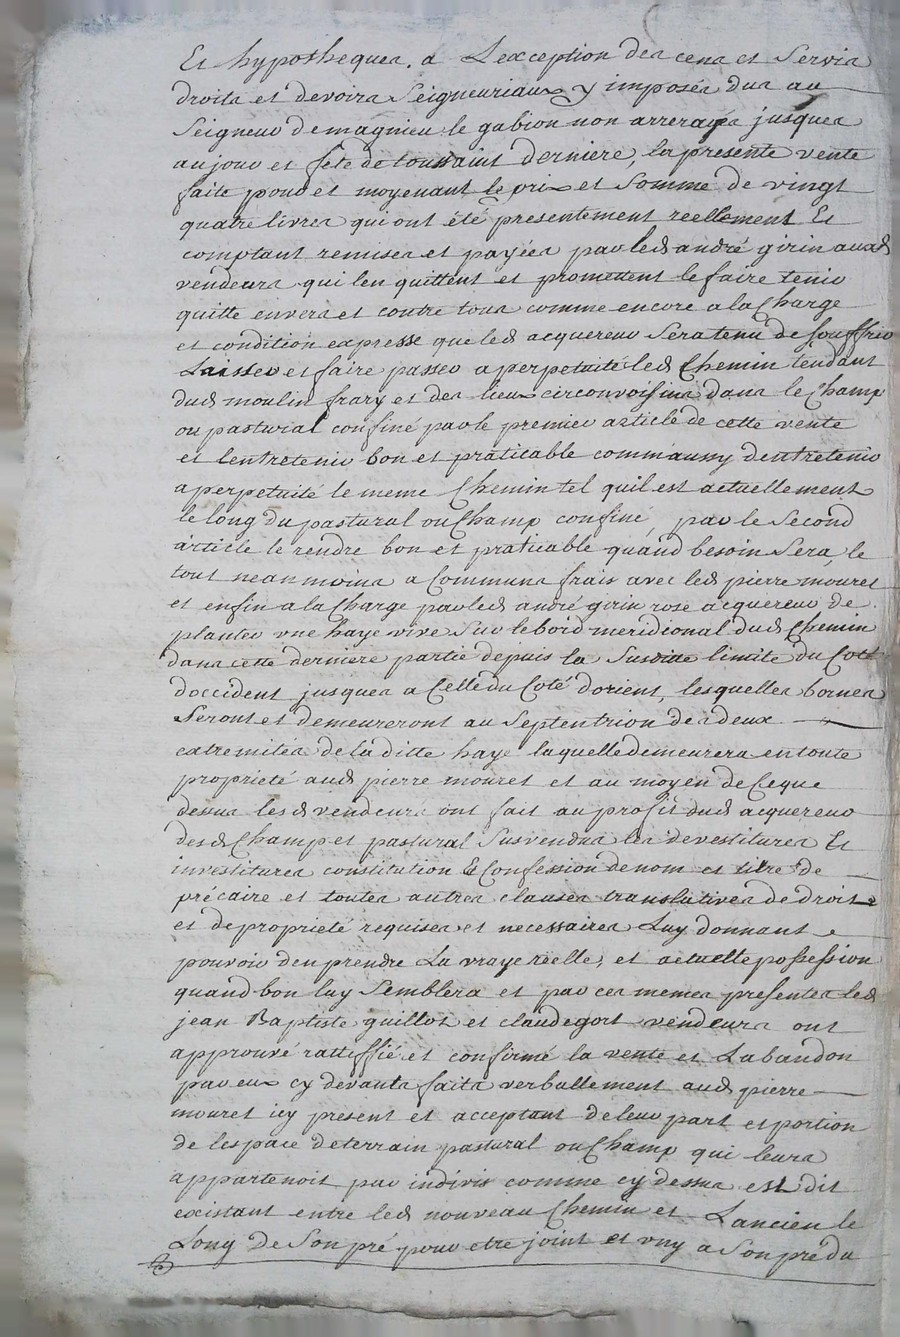 Et hypotheques. a Lexception des cens et Servis
droits et devoirs Seigneuriaux y imposés dus au
Seigneur demagnieu le gabion non arreragés jusques
aujour et fête de toussaint derniere, la presente vente
faite pour et moyenant le prix et Somme de vingt
quatre livres qui ont été presentement reellement Et
comptant remises et payées par led andré girin auxd
vendeurs qui len quittent et promettent le faire tenir
quitte envers et contre tous comme encore a la Charge
et condition expresse que led acquereur Sera tenu de Souffrir
Laisser et faire passer a perpetuité led Chemin tendant
dud moulin frary et des lieux circonvoisins dans le Champ
ou pastural confiné par le premier article de cette vente
et lentretenir bon et praticable comm auny dentretenir
a perpetuité le meme Chemin tel quil est actuellement
le long du pastural ou Champ confiné par le Second
article le rendre bon et praticable quand besoin Sera, le
tout neanmoins a Communs frais avec led pierre mouret
et enfin a la Charge par led andré girin rose acquereur de
planter une haye vive Sur le bord meridional dud Chemin
dans cette derniere partie depuis la Susditte limite du Coté
doccident jusques a Celle du Coté dorient, lesquelles bornes
Seront et demeureront au Septentrion des deux
extremités de la ditte haye laquelle demeurera en toute
propriété aud pierre mouret et au moyen de Ceque
dessus lesd vendeurs ont fait au profit dud acquereur
desd Champ et pastural Susvendus les devestitures Et
investitures constitution Et Confession de nom et titre de
précaire et toutes autres clauses translatives de droit
et de propriété requises et necessaires Luy donnant
pouvoir den prendre La vraye réelle, et actuelle possession
quand bon luy Semblera et par ces memes presentes led
jean Baptiste guillot et claude gort vendeurs ont
approuvé rattiffié et confirmé la vente et Labandon
par eux cy devants faits verballement aud pierre
mouret icy present et acceptant de leur part et portion
de lespace de terrain pastural ou Champ qui leurs
appartenoit par indivis comme cy dessus est dit
existant entre led nouveau Chemin et Lancien le
Long de Son pré pour etre joint et uny a Son pré du